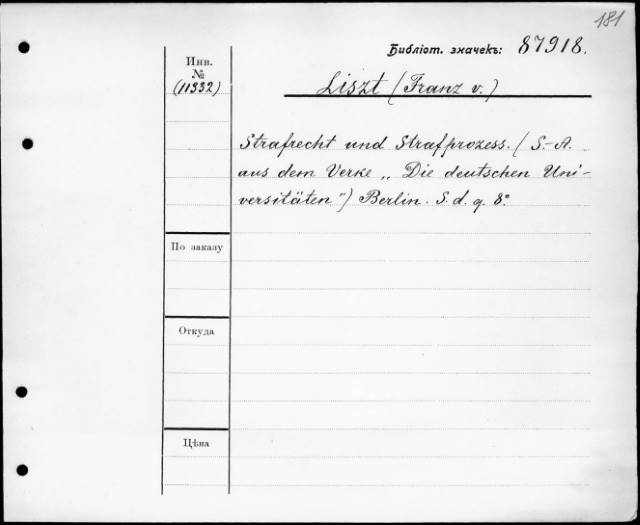 181
Библіот. значекъ: 87918.
Инв.
№
(11332)
Liszt (Franz v.)
Strafrecht und Strafprozess. (S.-A.
aus dem Verke „Die deutschen Uni-
versitäten") Berlin. S. d. g. 8°
По заказу
Откуда
Цѣна